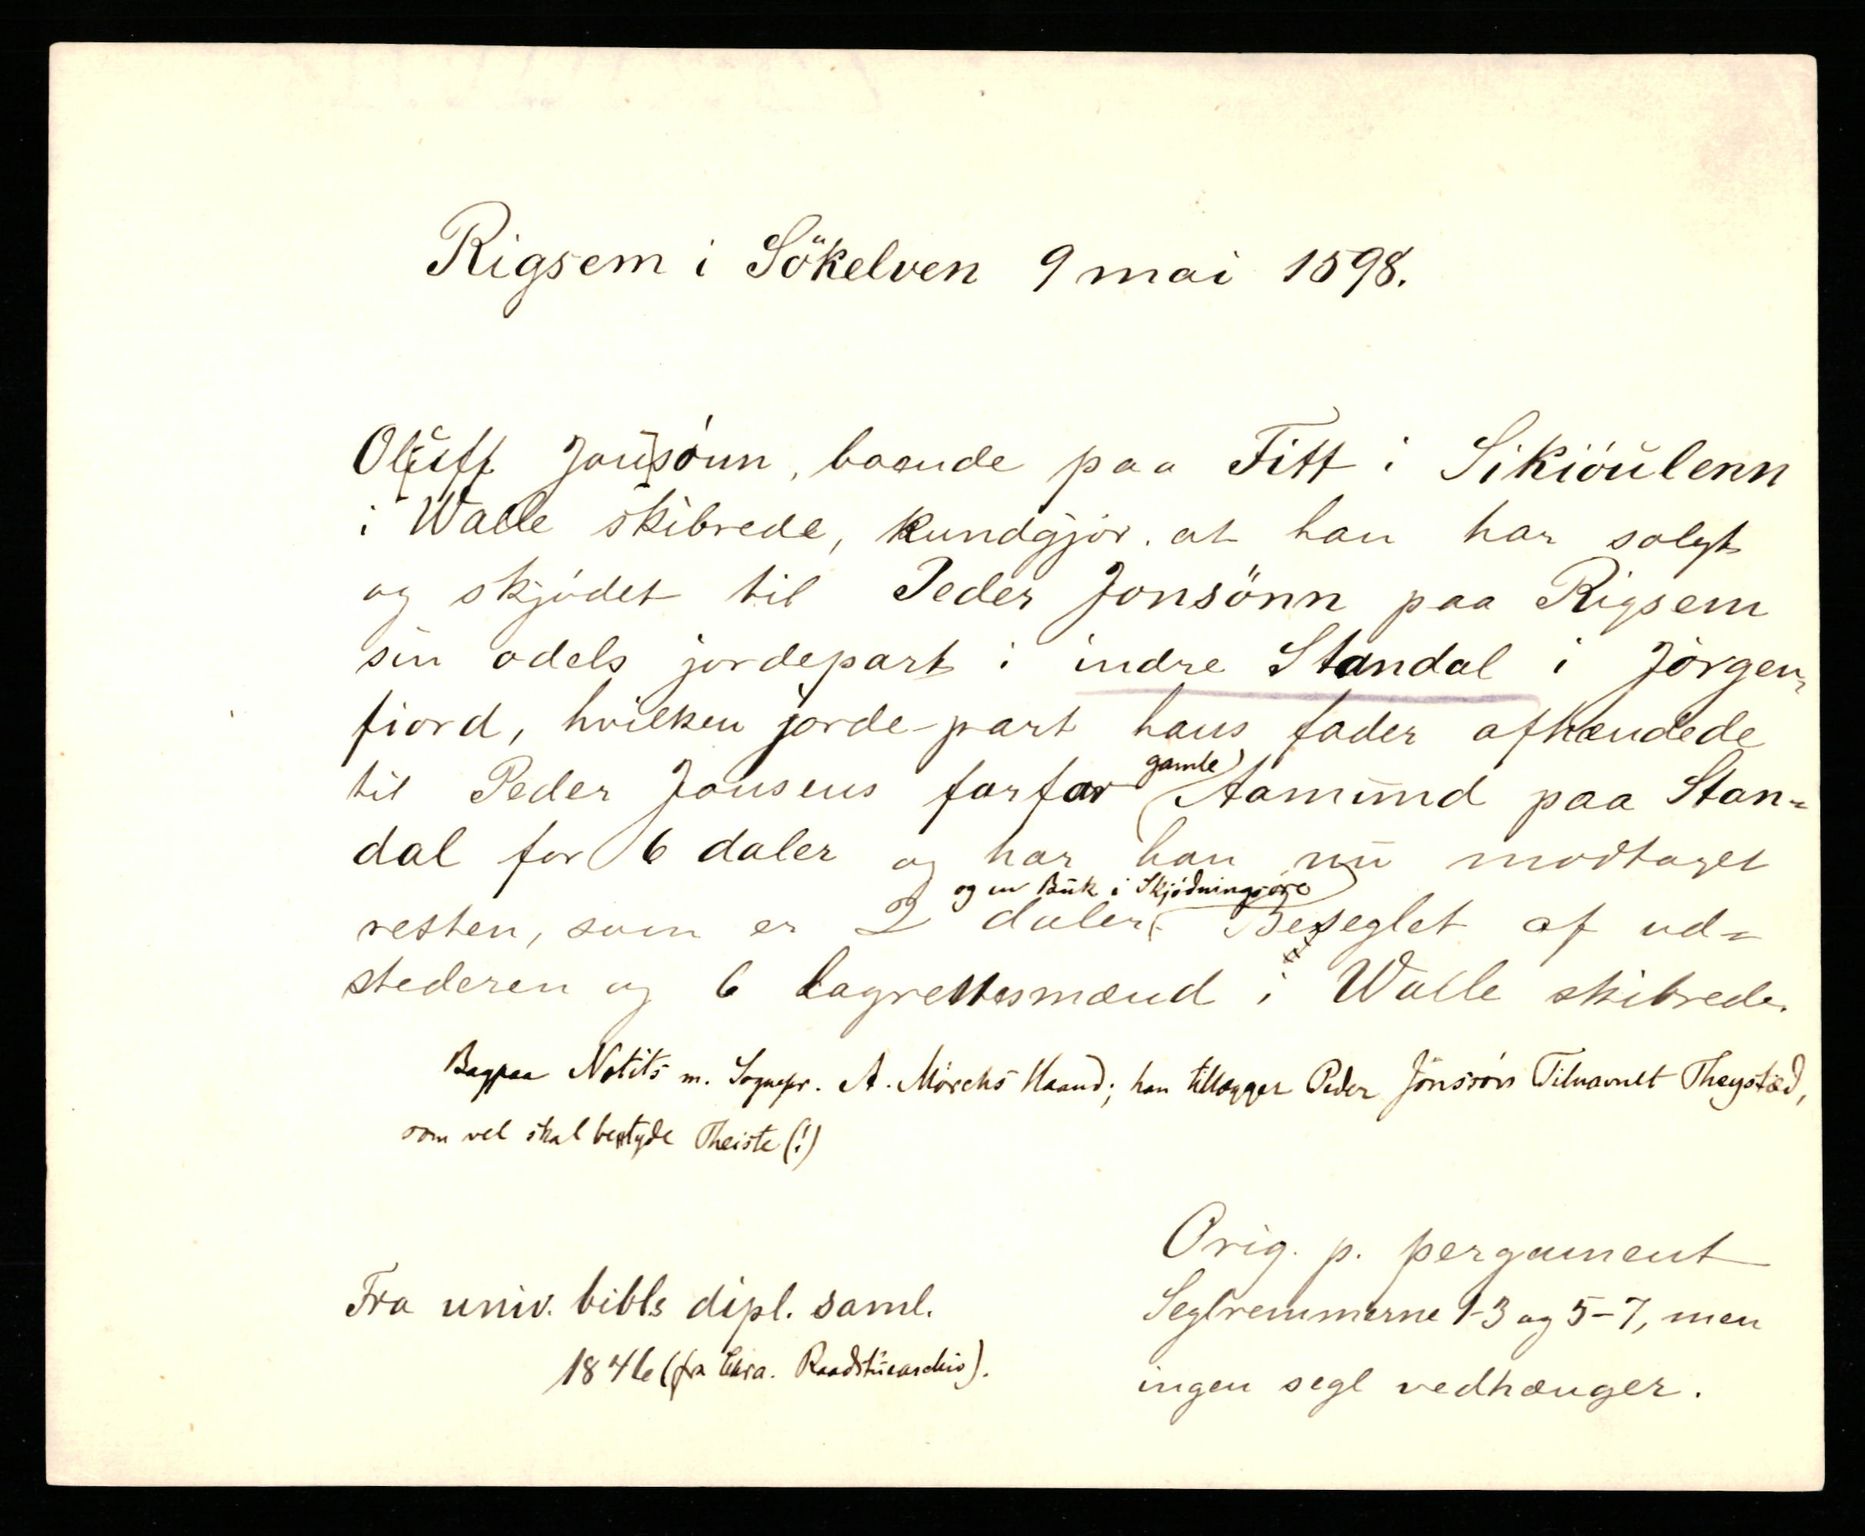 Rigsem i Sökelven 9 mai 1598.
Oluff Jonsönn, boende paa Fitt i Sikiöulenn
i Walle skibrede, kundgjör at han har solgt
og skjödet til Peder Jonsönn paa Rigsem
sin odels jordepart i indre Standal i Jörgen-
fiord, hvilken jorde-part hans fader afhændede
til Peder Jonsens farfar gamle Aamund paa Stan-
dal for 6 daler og har han nu modtaget
resten, som er 2 daler og en Buk i Skjödningsöre. Beseglet af ud-
stederen og 6 lagrettesmænd i Walle skibrede.
Bagpaa Notits m. Sognepr. A. Mörchs Haand; han tillægger Peder Jönssön Tilnavnet Theysted,
som vel skal betyde Theiste (!)
Orig. p. pergament
Seglremmerne 1-3 og 5-7, men
ingen segl vedhænger.
Fra univ. bibls dipl. saml.
1846 (fra Chra. Raadstuearchiv).